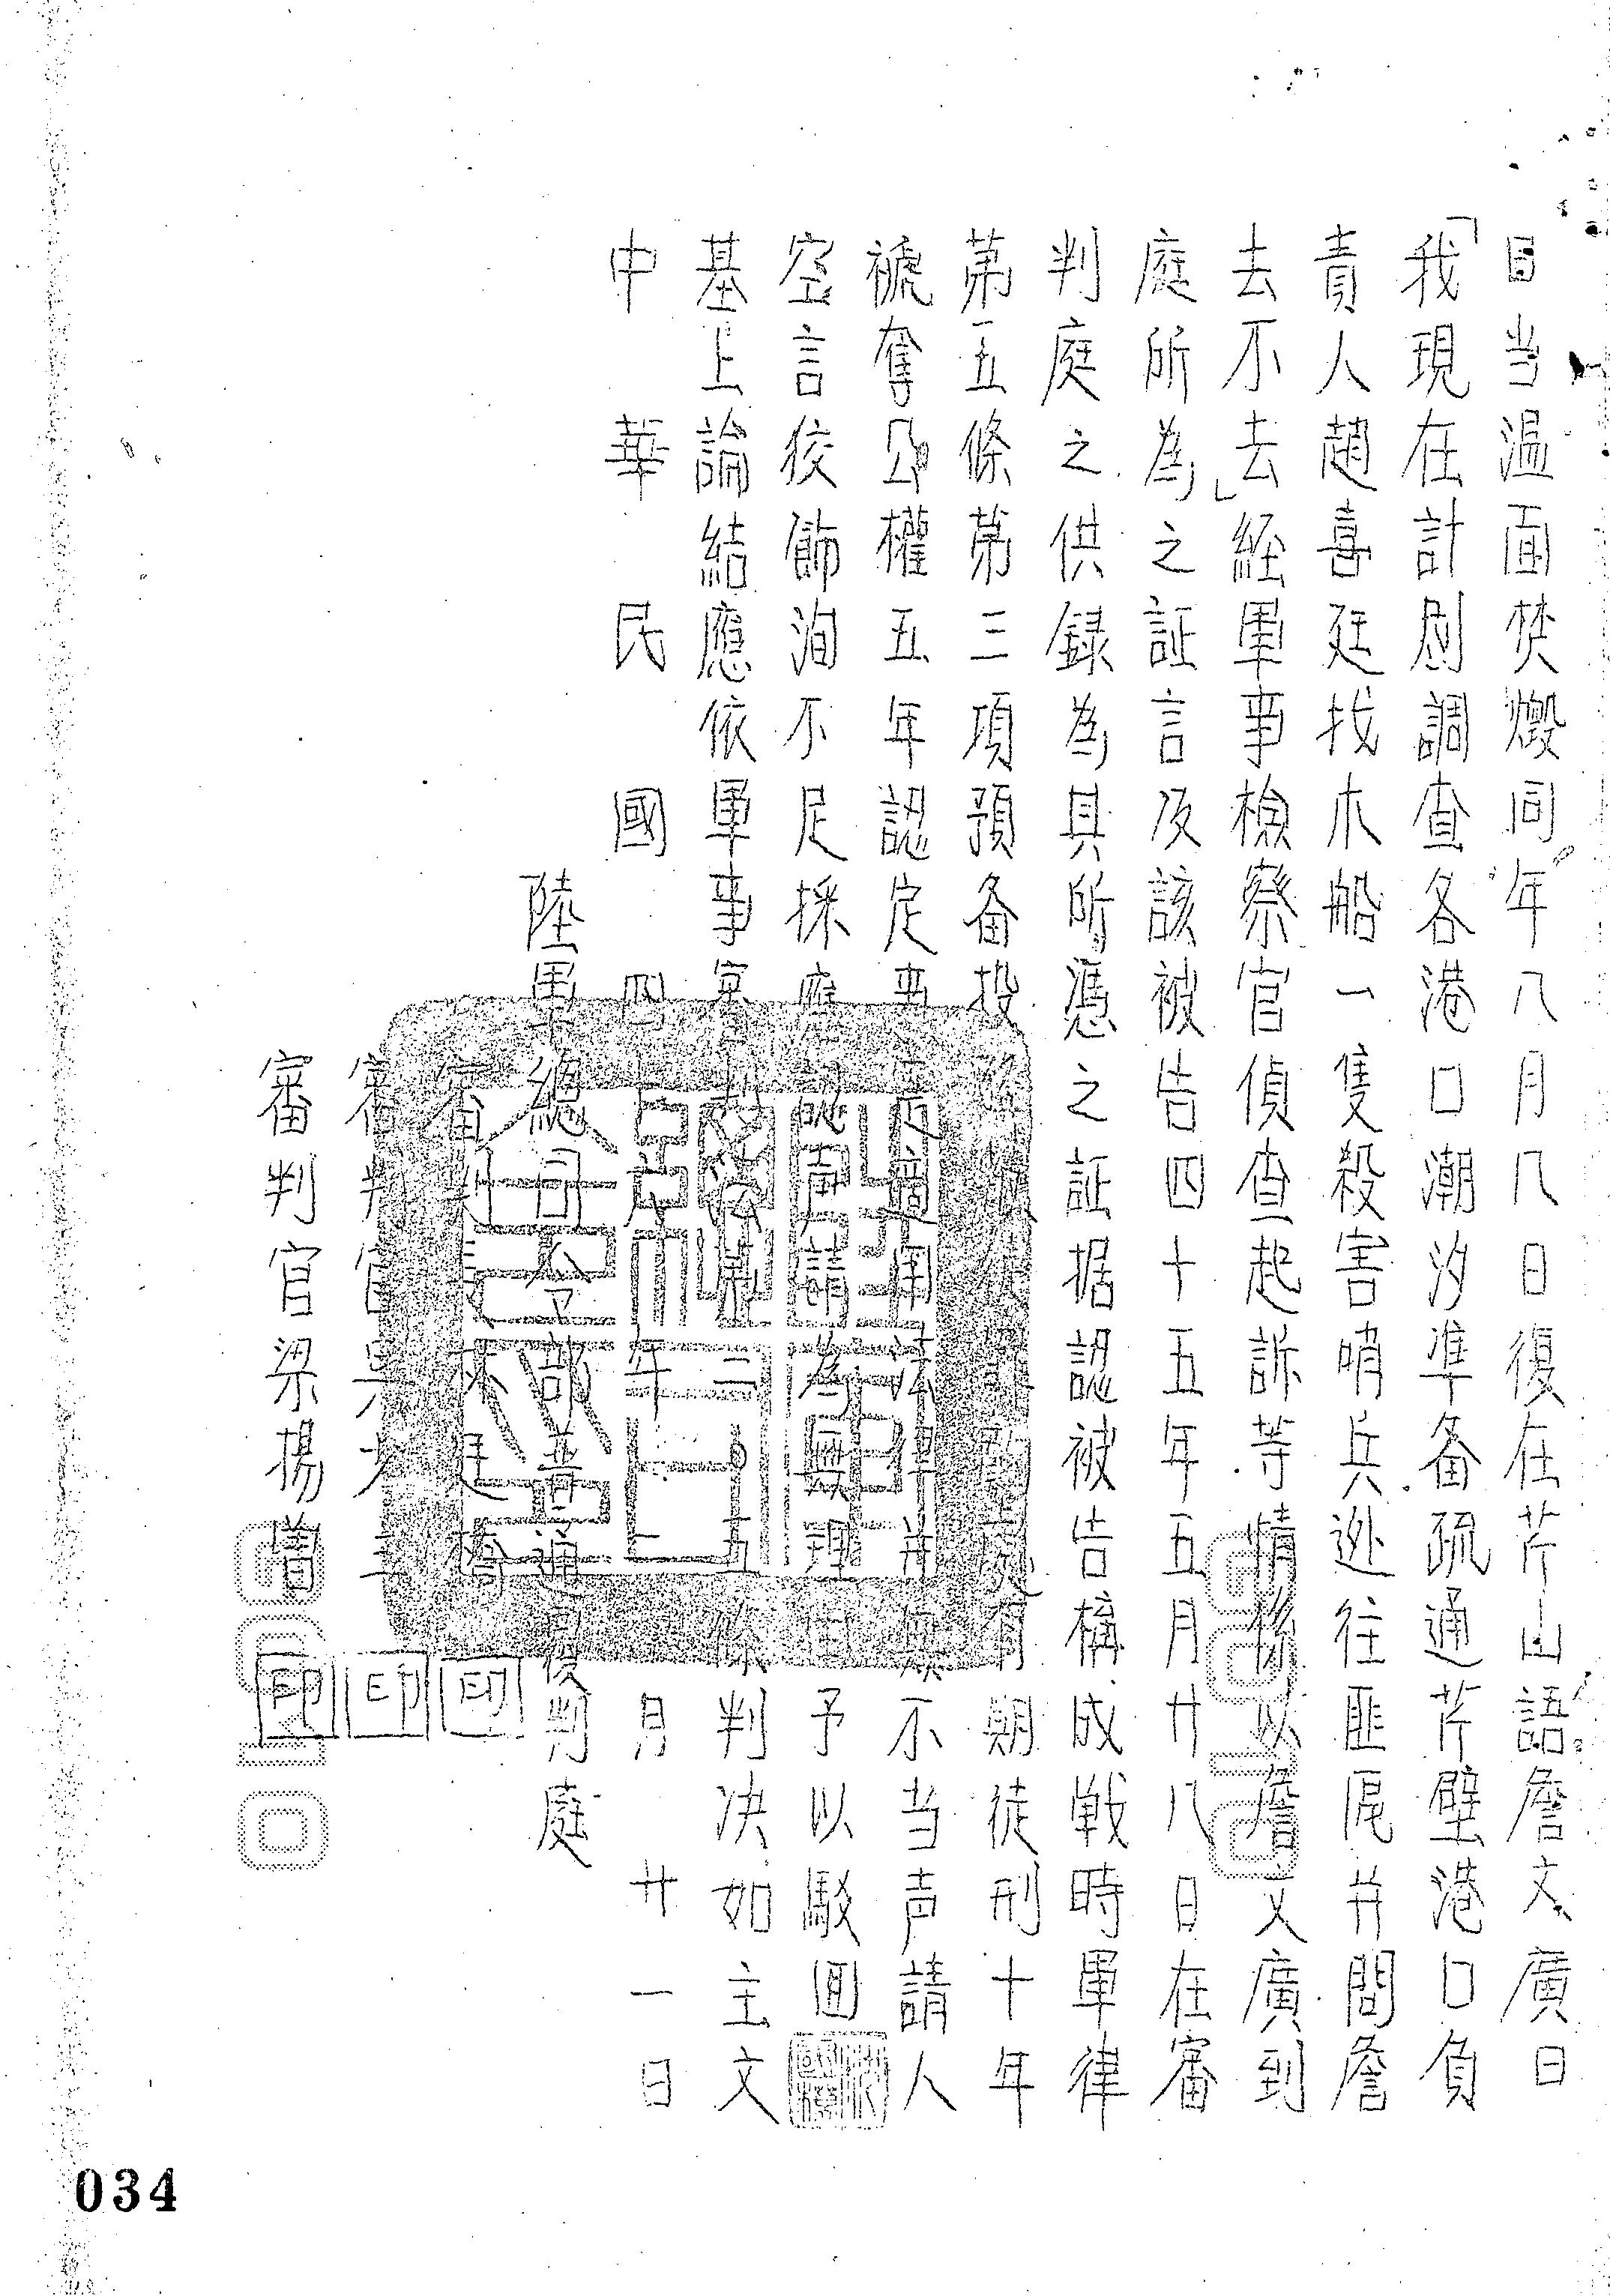 当温面焚燬同年八月八日復在芹山語詹文廣日
「我現在計劃調查各港口潮汐準备疏通芹壁港口負
責人趙喜廷找木船一隻殺害哨兵逃往匪區并問詹
去不去」經軍事檢察官偵查起訴等情係以詹文廣到
庭所為之証言及該被告四十五年五月廿八日在審
判庭之供録為其所憑之証据認被告構成戰時軍律
第五條第三項預备投處有期徒刑十年
褫奪公權五年認定事適用法律并無不当声請人
空言狡飾洵不足採應認声請為無理由予以駁囬
基上論結應依軍事審判法第二〇五條判決如主文
中華民國四年二月廿一日
陸軍總司令部普通覆判庭
審判官林廷
審判官吳
審判官梁揚
印
印
印
034